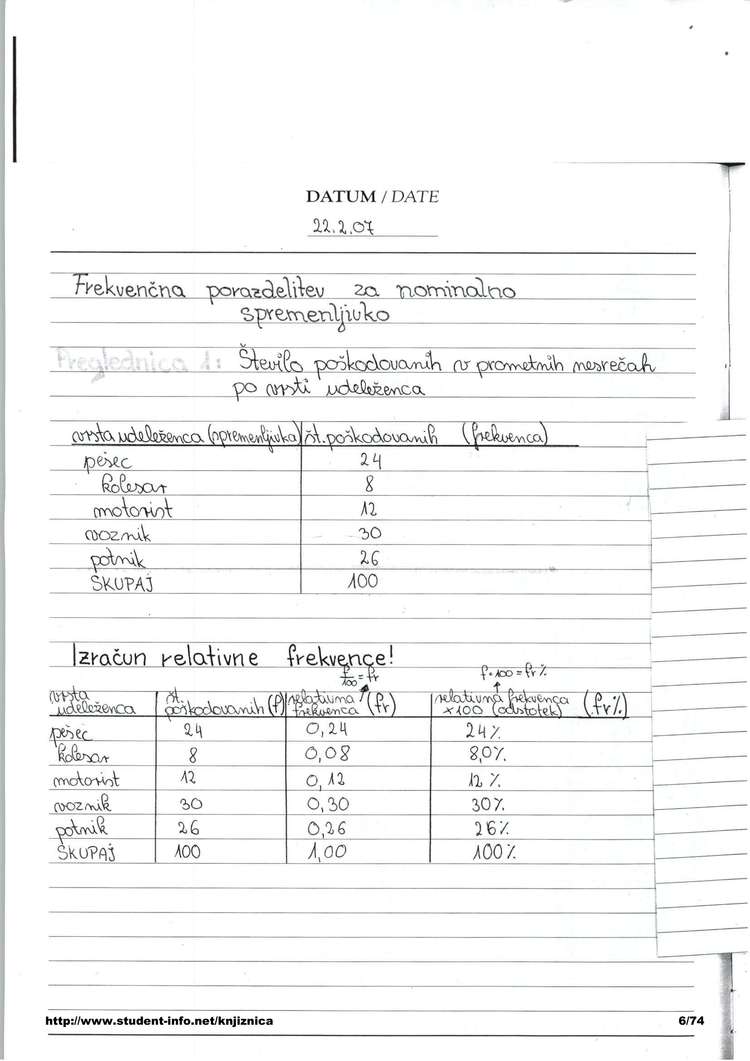 DATUM / DATE
22.2.07
Frekvenčna porazdelitev za nominalno
spremenljivko
Preglednica 1: Število poškodovanih v prometnih nesrečah
po vrsti udeleženca
vrsta udeleženca (spremenljivka) št. poškodovanih (frekvenca)
pešec 24
kolesar 8
motorist 12
voznik 30
potnik 26
SKUPAJ 100
Izračun relativne frekvence!
f/100 = fr f·100 = fr%
vrsta udeleženca št. poškodovanih (f) relativna frekvenca (fr) relativna frekvenca x100 (odstotek) (fr%)
pešec 24 0,24 24%
kolesar 8 0,08 8,0%
motorist 12 0,12 12%
voznik 30 0,30 30%
potnik 26 0,26 26%
SKUPAJ 100 1,00 100%
http://www.student-info.net/knjiznica 6/74